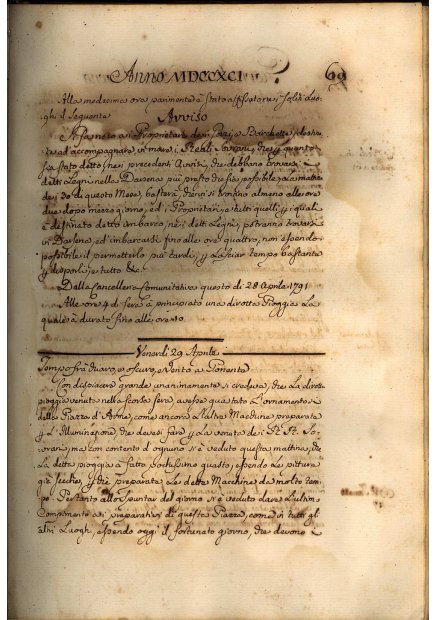 Anno MDCCXCI
69
Alla medecima ora parimente è stato affisso
ghi il Seguente Avviso
Si fa noto a i Proprietari de i Barchette
ad accompagnare in mare i Reali Sovrani, che
sia stato detto ne i precedenti Avvisi, che debbano trovarsi i
detti Legni nella Darsena più presto che sia possibile la mattina
de i 30 di questo Mese, basterà, che vi si trovino almeno alle ore
due dopo mezzo giorno, ed i Proprietari, e tutti quelli, i quali
è destinato detto imbarco, ne i detti Legni, potranno trovarsi
in Darsena, ed imbarcarsi fino alle ore quattro, non essendo
possibile il permetterlo più tardi, lasciar tempo bastante
disporli per tutto &c.
Dalla Cancelleria Comunitativa questo dì 28 Aprile 1791
Alle ore 4 di sera è principiato una dirotta Pioggia La
quale à durato fino alle ore 10
Venerdì 29 Aprile
Tempo frà chiaro, e oscuro, e Vento a Ponente
Con dispiacere grande unanimamente si credeva, che La dirotta
pioggia venuta nella scorsa sera, avesse guastato L'ornamento
della Piazza d'Arme, come ancora L'altre Macchine preparate
L'Illuminazione, che devesi fare La venuta de i So-
vrani, ma con contento d'ognuno si è veduto questa mattina, che
La detta pioggia à fatto pochissimo guasto, essendo Le pitture
già secche, preparate Le dette Macchine da molto tem-
po. Pertanto allo spuntar del giorno si è veduto dare L'ultimo
Compimento a i preparativi di questa Piazza, come in tutti gl'
altri Luoghi, essendo oggi il fortunato giorno, che devono